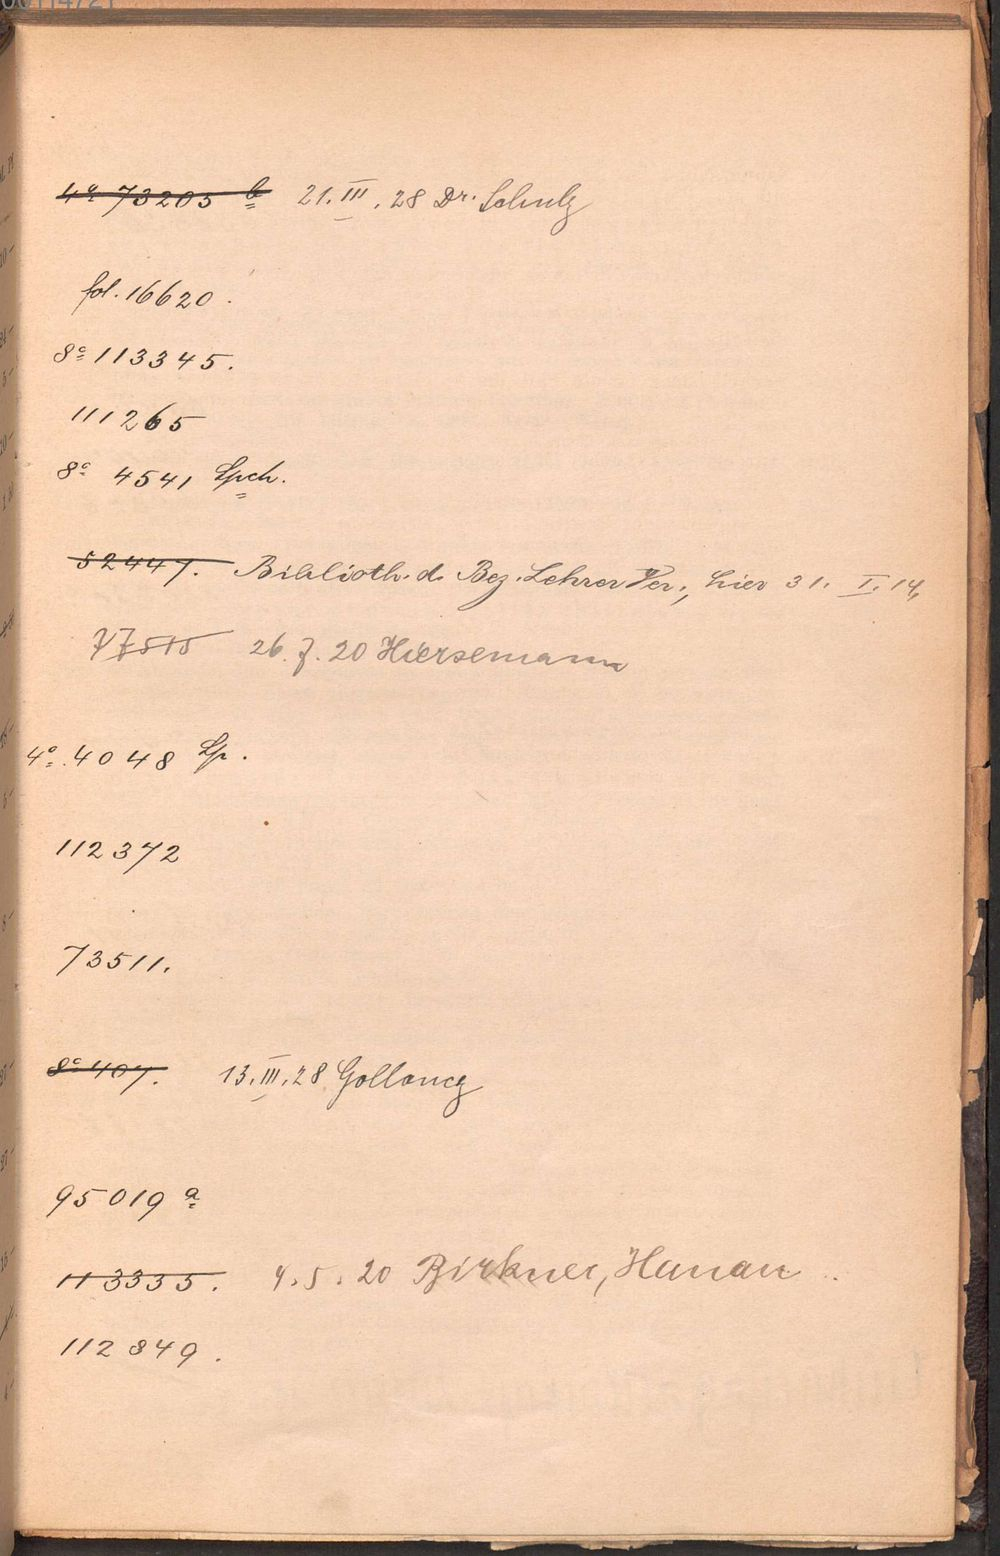 4º 73205 b 21. III. 28 Dr. Schulz
fol. 16620.
8º 113345.
111265
8º 4541 Spch.
52447. Biblioth. d. Bez. Lehrer Ver., hier 31. I. 14,
77515 26. 7. 20 Hiersemann
4º. 4048 Sp.
112372
73511.
8º 407. 13. III. 28 Gollancz
95019 a
113335. 4. 5. 20 Birkner, Hanau.
112849.